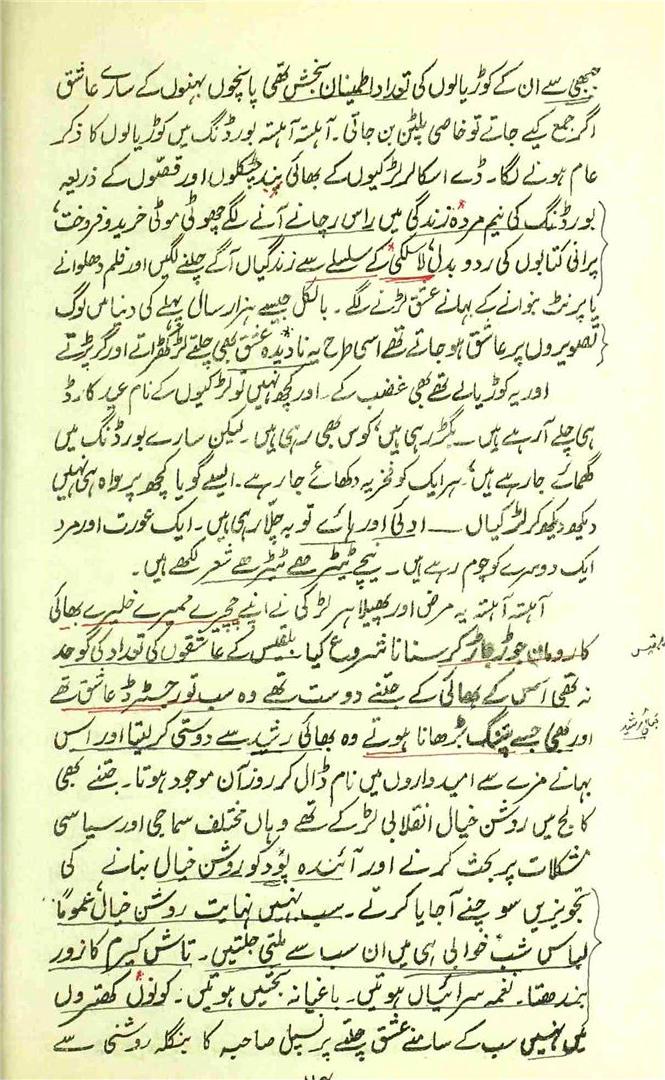 جبھی سے ان کے کوڑیالوں کی تعداد اطمینان بخش تھی پانچوں بہنوں کے سارے عاشق
اگر جمع کیے جاتے تو خاصی پلٹن بن جاتی۔ آہستہ آہستہ بورڈنگ میں کوڑیالوں کا ذکر
عام ہونے لگا۔ ڈے اسکالر لڑکیوں کے بھائی بند چٹکلوں اور قصّوں کے ذریعہ
بورڈنگ کی نیم مردہ زندگی میں راس رچانے آنے لگے چھوٹی موٹی خرید و فروخت،
پرانی کتابوں کی ردو بدلی، لاسلکی کے سلسلے سے زندگیاں آگے چلنے لگیں اور فلم دھلوانے
یا پرنٹ بنوانے کے بہانے عشق لڑنے لگے۔ بالکل جیسے ہزار سال پہلے کی دنیا میں لوگ
تصویروں پر عاشق ہو جاتے تھے اسی طرح یہ نادیدہ عشق بھی چلتے لڑکھڑاتے اور گر پڑتے
اور یہ کوڑیالے تھے بھی غضب کے۔ اور کچھ نہیں تو لڑکیوں کے نام عید کارڈ
ہی چلے آ رہے ہیں۔ بگڑ رہی ہیں، کوس بھی رہی ہیں۔ لیکن سارے بورڈنگ میں
گھمائے جا رہے ہیں، ہر ایک کو فخریہ دکھائے جا رہے۔ ایسے گویا کچھ پرواہ ہی نہیں
دیکھ دیکھ کر لڑکیاں ــــ اوئی اور ہائے توبہ چلّا رہی ہیں۔ ایک عورت اور مرد
ایک دوسرے کو چوم رہے ہیں۔ نیچے ٹیڑھے ٹیڑھے شعر لکھے ہیں۔
آہستہ آہستہ یہ مرض اور پھیلا ہر لڑکی نے اپنے چچرے ممیرے خلیرے بھائی
کا رومان جوڑ جاڑ کر سنانا شروع کیا بلقیس کے عاشقوں کی تعداد کی گو حد
بلقیس
نہ تھی اس کے بھائی کے جتنے دوست تھے وہ سب تو رجسٹرڈ عاشق تھے
بھائی رشید
اور بھی جسے پتنگ بڑھانا ہوتے وہ بھائی رشید سے دوستی کر لیتا اور اس
بہانے مزے سے امیدواروں میں نام ڈال کر روز آن موجود ہوتا۔ جتنے بھی
کالج میں روشن خیال انقلابی لڑکے تھے وہاں مختلف سماجی اور سیاسی
مشکلات پر بحث کرنے اور آئندہ پود کو روشن خیال بنانے کی
تجویزیں سوچنے آ جایا کرتے۔ سب بہنیں نہایت روشن خیال، عموماً
لباس شب خوابی ہی میں ان سب سے ملتی جلتیں۔ تاش کیرم کا زور
بندھتا۔ نغمہ سرائیاں ہوتیں۔ باغیانہ بحثیں ہوتیں۔ کونوں کھتروں
میں نہیں سب کے سامنے عشق چلتے پرنسپل صاحبہ کا بنگلہ روشنی سے